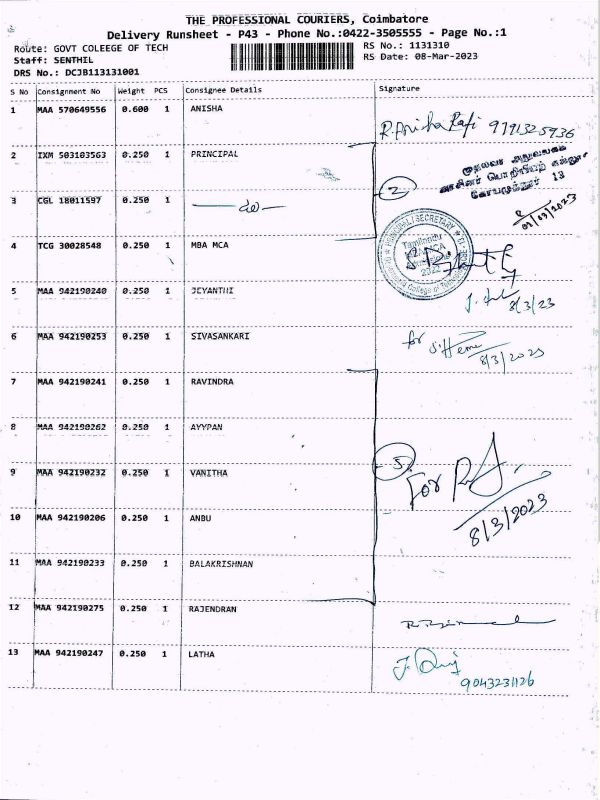 THE PROFESSIONAL COURIERS, Coimbatore
Delivery Runsheet - P43 - Phone No.:0422-3505555 - Page No.:1
Route: GOVT COLEEGE OF TECH
Staff: SENTHIL
DRS No.: DCJB113131001
RS No.: 1131310
RS Date: 08-Mar-2023
S No Consignment No Weight PCS Consignee Details Signature
1 MAA 570649556 0.600 1 ANISHA
R. Anisha Rafi 9791325936
2 IXM 503103563 0.250 1 PRINCIPAL
முதல்வர் அலுவலகம்
அரசினர் பொறியியற் கல்லூரி
கோயமுத்தூர் 13
2
3 CGL 18011597 0.250 1
4 TCG 30028548 0.250 1 MBA MCA
Tamilnadu
2022
5 MAA 942190240 0.250 1 JEYANTHI
8/3/23
6 MAA 942190253 0.250 1 SIVASANKARI
for
8/3/2023
7 MAA 942190241 0.250 1 RAVINDRA
8 MAA 942190262 0.250 1 AYYPAN
9 MAA 942190232 0.250 1 VANITHA
5
For
8/3/2023
10 MAA 942190206 0.250 1 ANBU
11 MAA 942190233 0.250 1 BALAKRISHNAN
12 MAA 942190275 0.250 1 RAJENDRAN
13 MAA 942190247 0.250 1 LATHA
9043231126